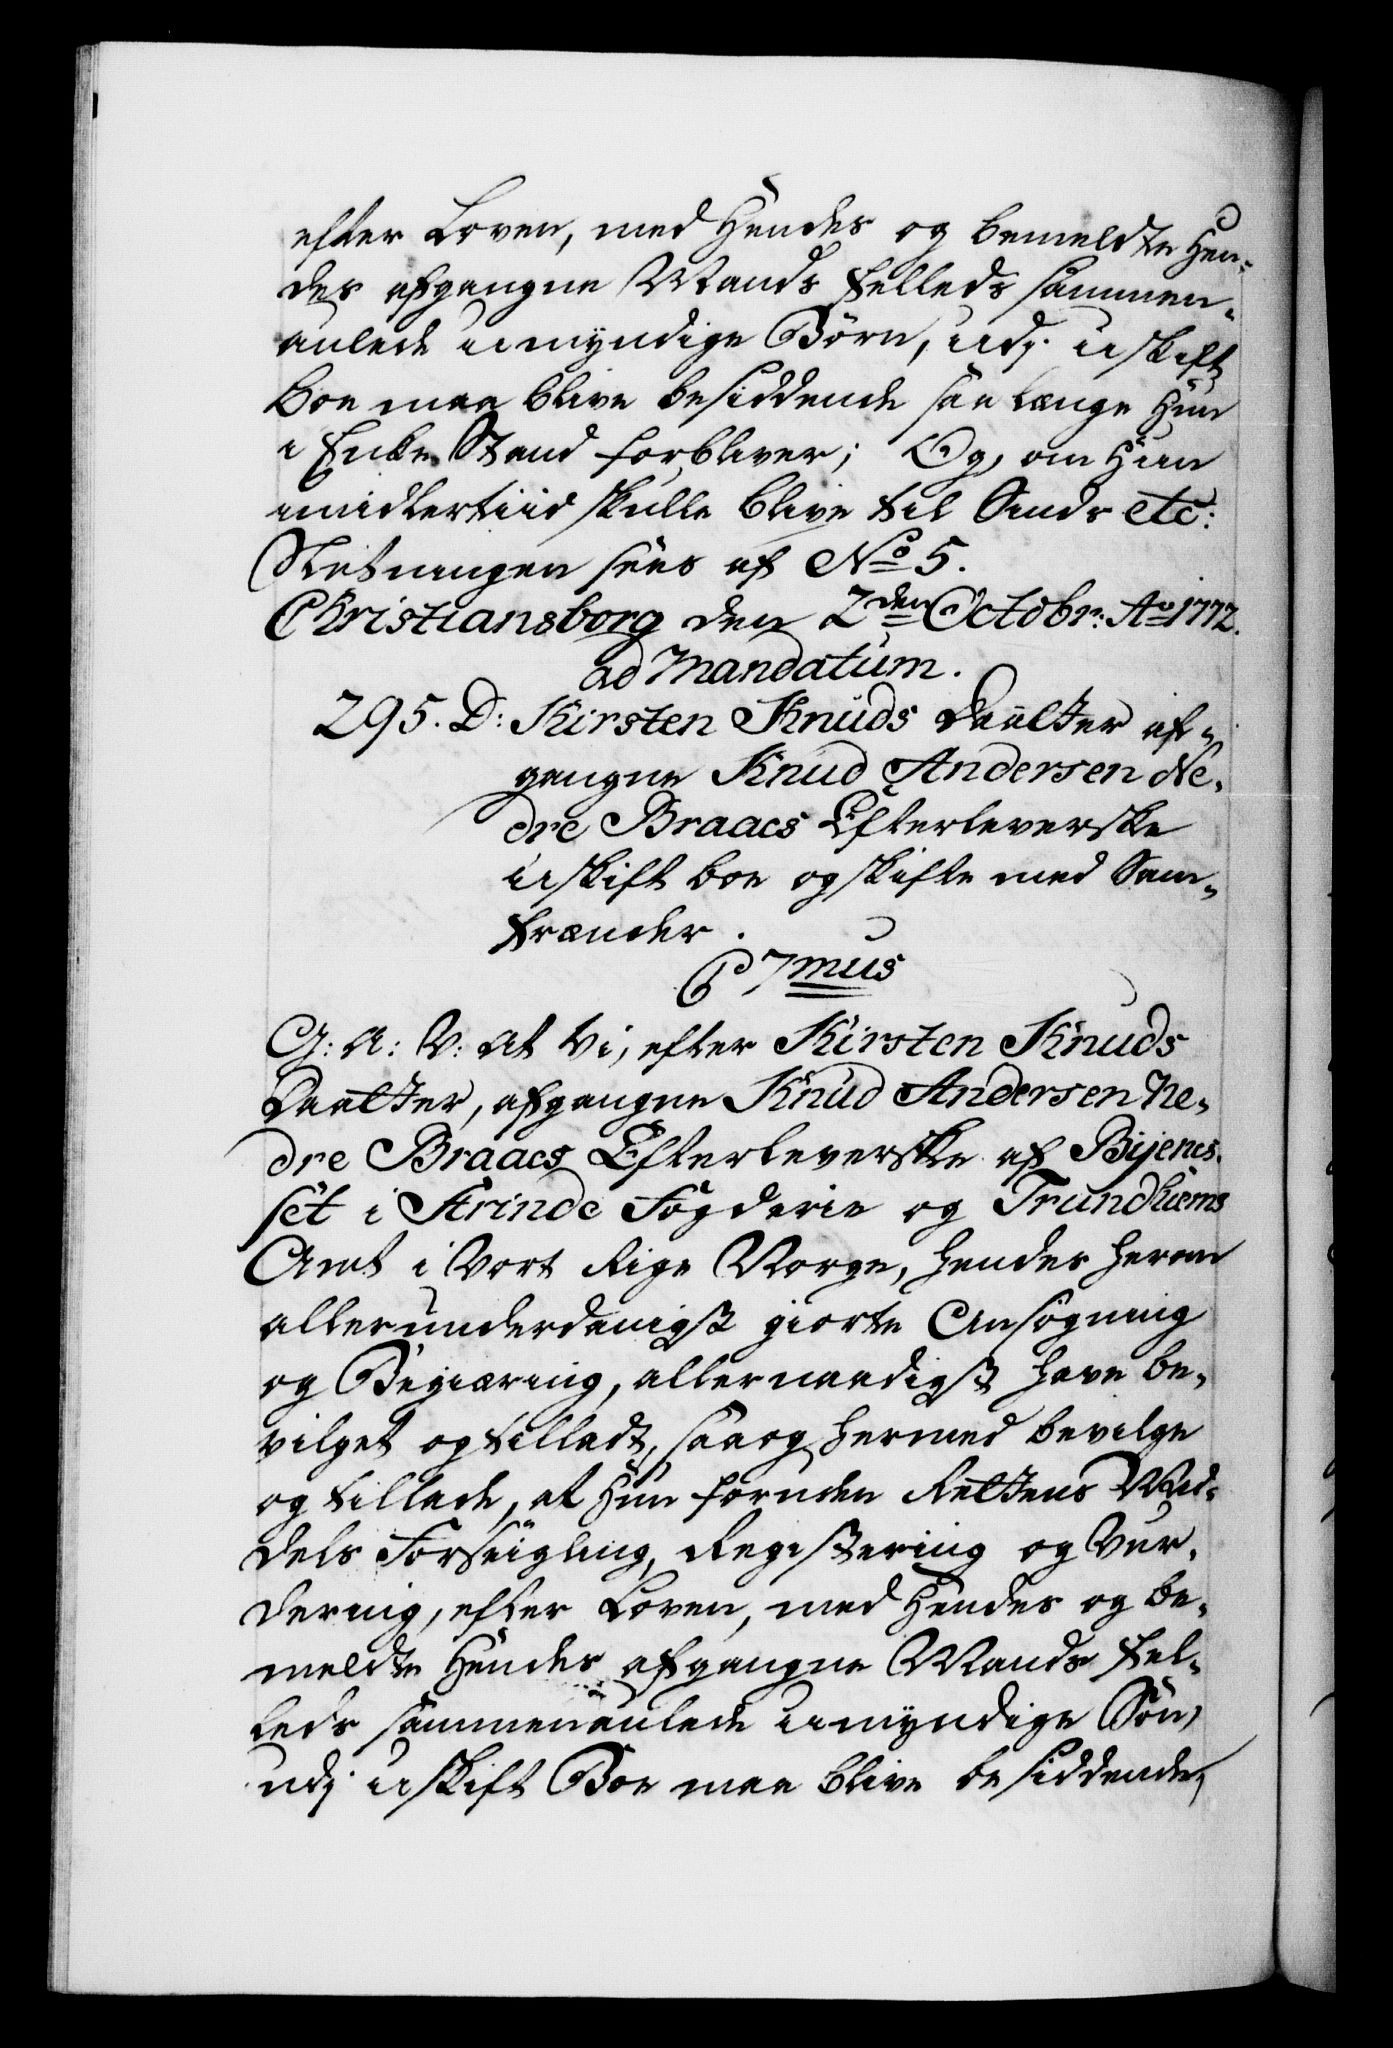 efter Loven, med Hendes og bemeldte Hen-
des afgangne Mands felleds sammen-
aulede umyndige Börn, udj uskift
boe maa blive besiddende saa længe Hun
i Enke Stand forbliver; Og, om Hun
imidlertiid skulle blive til Sinds etc:
Slutningen sees af No 5.
Christiansborg den 2den Octobr: Ao 1772.
ad Mandatum.
295. D: Kirsten Knuds Daatter af-
gangne Knud Andersen Ne-
dre Braaes Efterleverske
uskift boe og skifte med Sam-
frænder.
C 7mus
G: A: V: at Vi, efter Kirsten Knuds
Daatter, afgangne Knud Andersen Ne-
dre Braaes Efterleverske af Bÿenes-
set i Strinde Fogderie og Trundhiems
Amt i Vort Rige Norge, hendes herom
allerunderdanigst giorte Ansögning
og Begiæring, allernaadigst have be-
vilget og tilladt, saa og hermed bevilge
og tillade, at Hun foruden Rettens Mid-
dels Forseigling, Registering og Vur-
dering, efter Loven, med Hendes og be-
meldte Hendes afgangne Mands fel-
leds sammenaulede umyndige Sön,
udj uskift Boe maa blive besiddende,